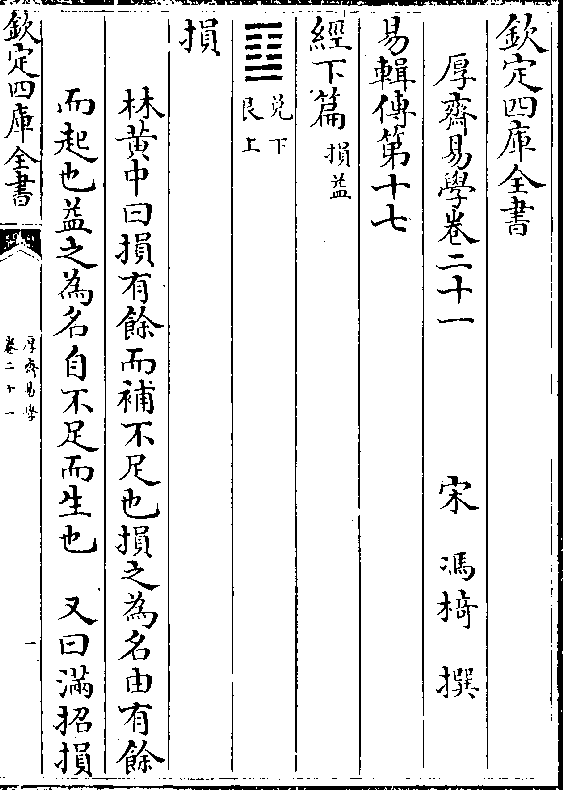 欽定四庫全書
厚齋易學卷二十一　宋　馮椅　撰
易輯傳第十七
經下篇 損益
䷨ 兌下
艮上
損
林黃中曰損有餘而補不足也損之為名由有餘
而起也益之為名自不足而生也　又曰滿招損
欽定四庫全書
厚齋易學
卷二十一
一